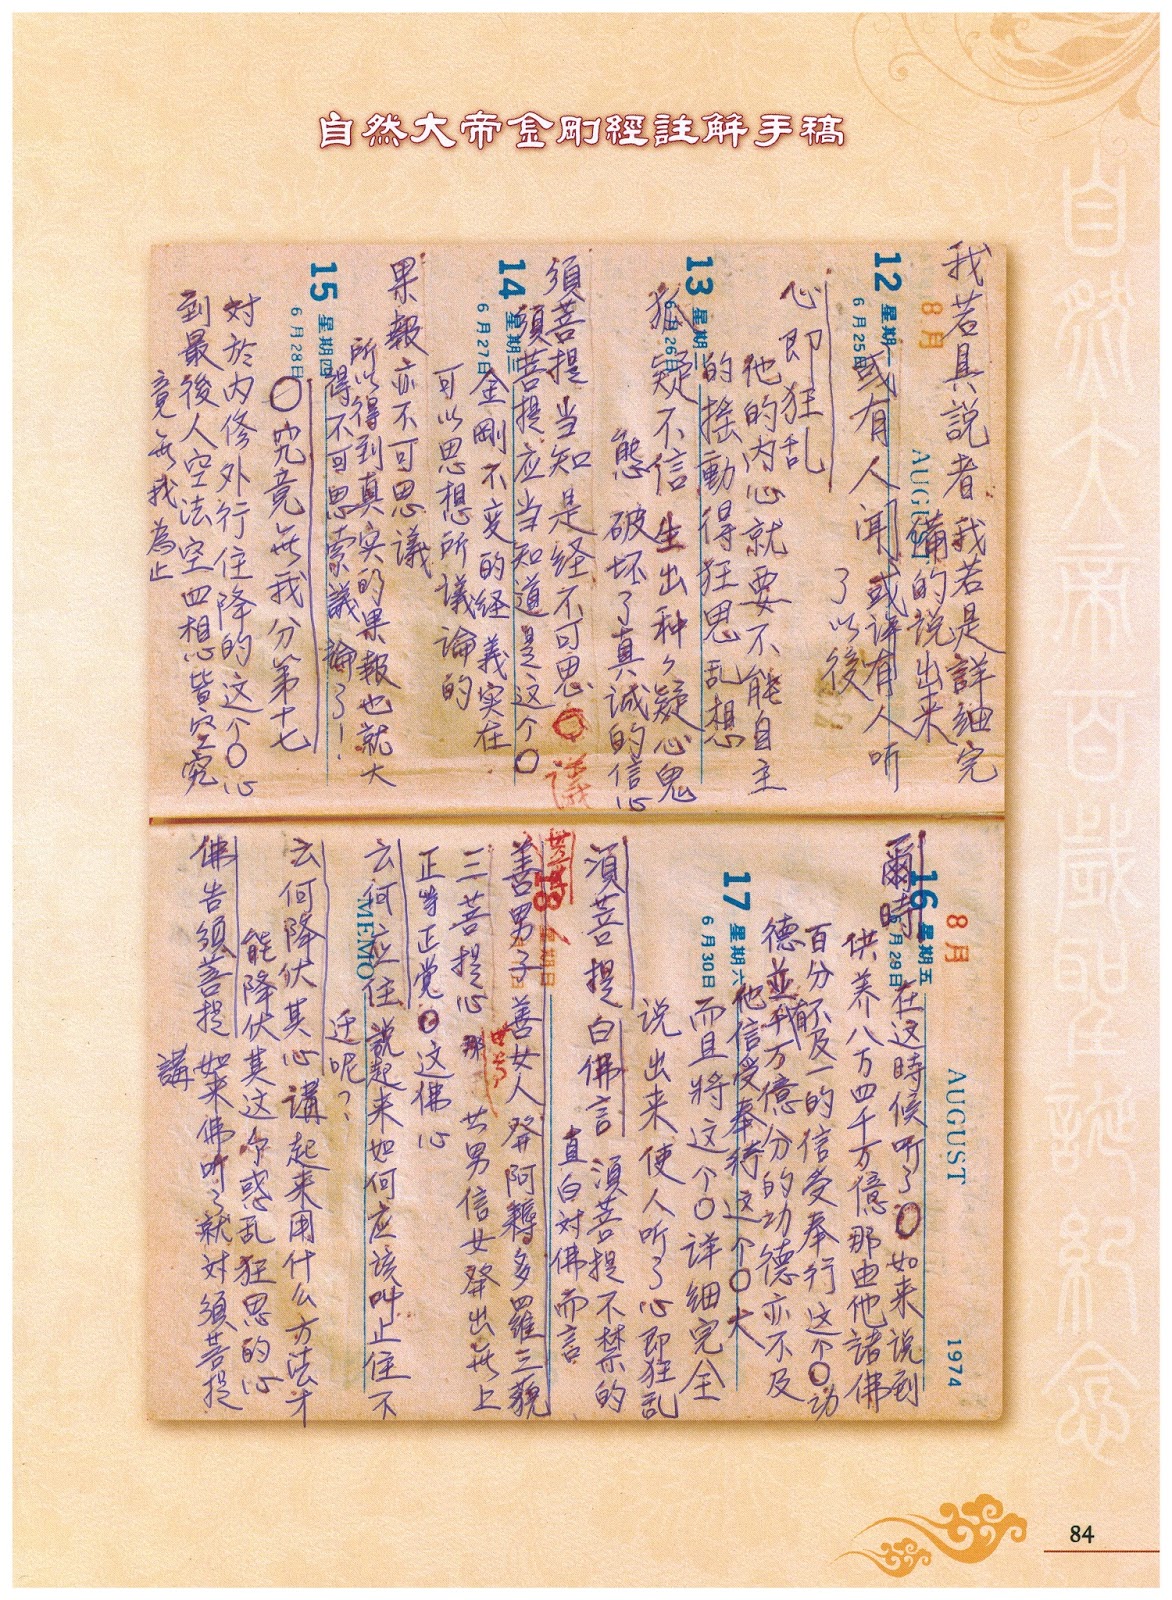 自然大帝金剛經註解手稿
我若具說者 我若是詳細完
備的說出來
8月
AUGUST
12 星期一
6月25日
或有人聞 或許有人听
了以後
心即狂乱
他的內心就要不能自主
的搖動得狂思乱想
13 星期二
6月26日
狐疑不信 生出种々疑心鬼
態 破坏了真誠的信心
須菩提当知是经不可思○議
須菩提应当知道是这个○
14 星期三
6月27日
金剛不変的経義实在
可以思想所議论的
果報亦不可思議
所以得到真实的果報也就大
得不可思索議論了!
15 星期四
6月28日
○究竟無我分第十七
对於內修外行住降的这个○心
到最後人空法空四相皆空究
竟無我為止
8月
AUGUST
1974
16 星期五
6月29日
爾時 在这時候听了○如来说到
供养八万四千万億那由他諸佛
百分不及一的信受奉行这个○功
德並千万億分的功德亦不及
17 星期六
6月30日
他信受奉持这个○大
而且将这个○详細完全
说出来使人听了心即狂乱
須菩提白佛言 須菩提不禁的
直白对佛而言
18 星期日
善男子善女人發阿耨多羅三藐
三菩提心 那 善男信女發出無上
正等正覚○这佛心
云何应住 說起来如何应该叫止住不
迁呢?
MEMO
云何降伏其心 講起来用什么方法才
能降伏其这个惑乱狂思的心
佛告須菩提 如来佛听了就对須菩提
講
自然大帝百歲聖誕紀念
84